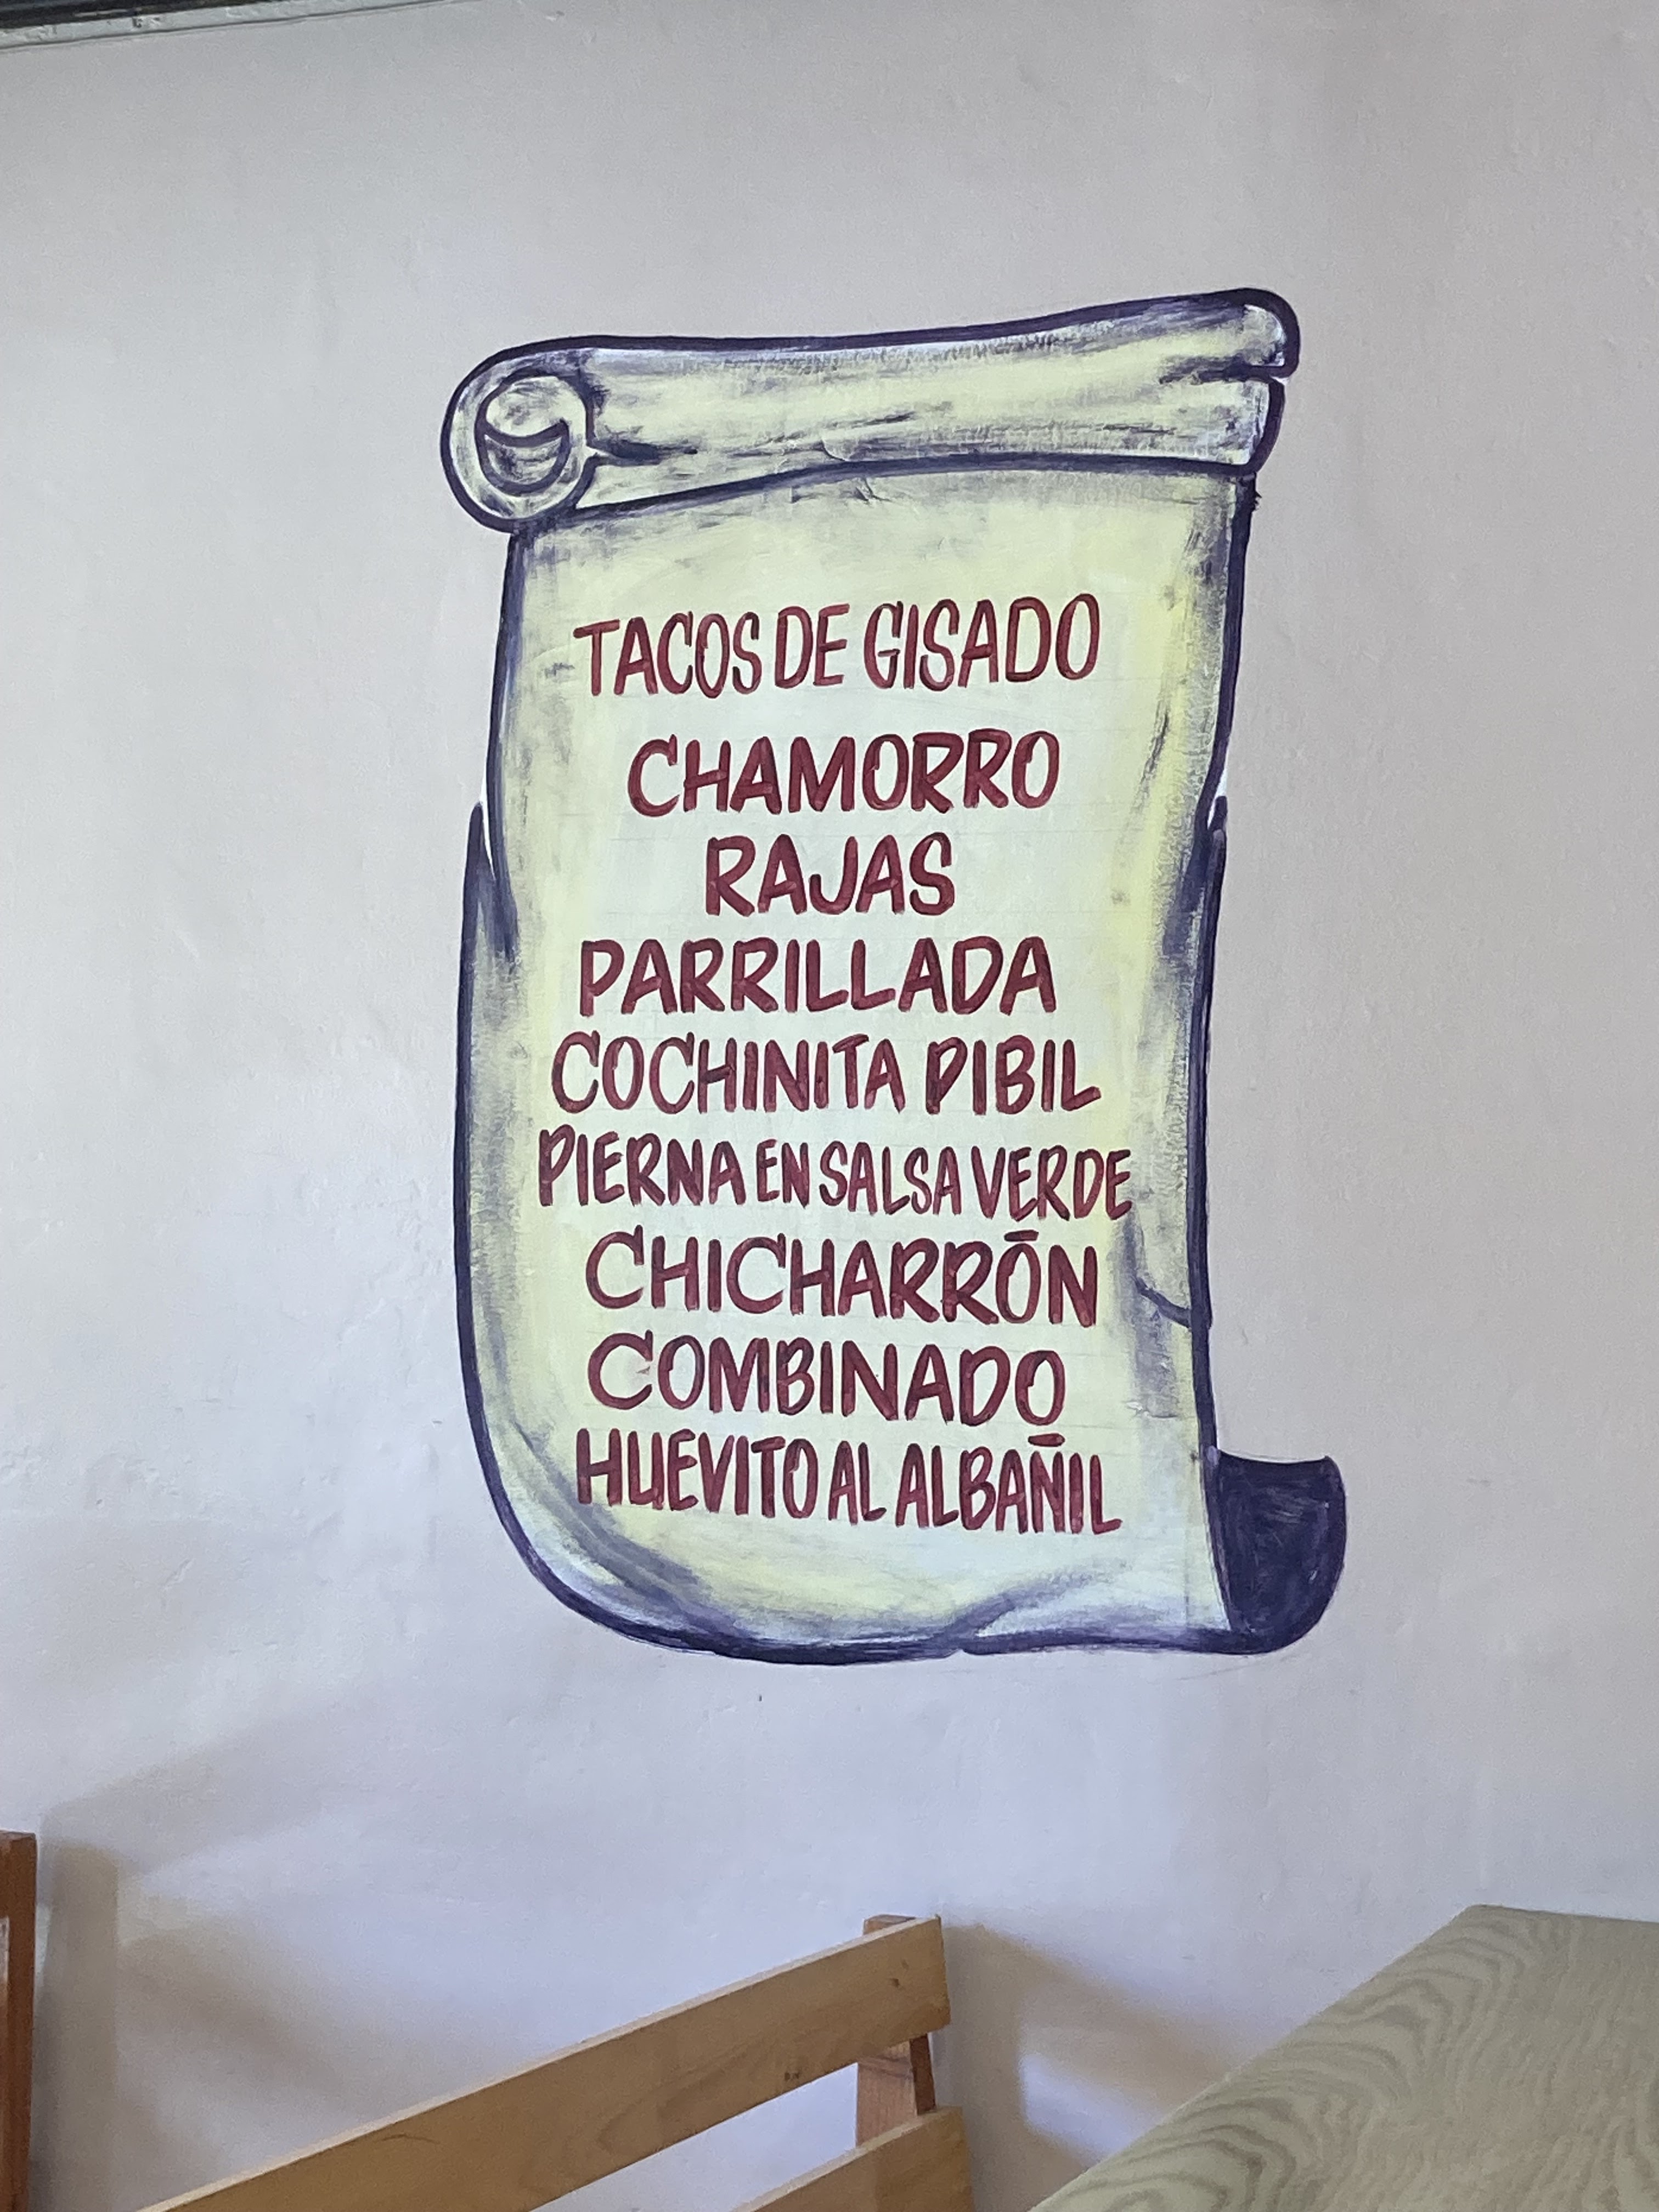 TACOS DE GISADO
CHAMORRO
RAJAS
PARRILLADA
COCHINITA PIBIL
PIERNA EN SALSA VERDE
CHICHARRÓN
COMBINADO
HUEVITO AL ALBAÑIL